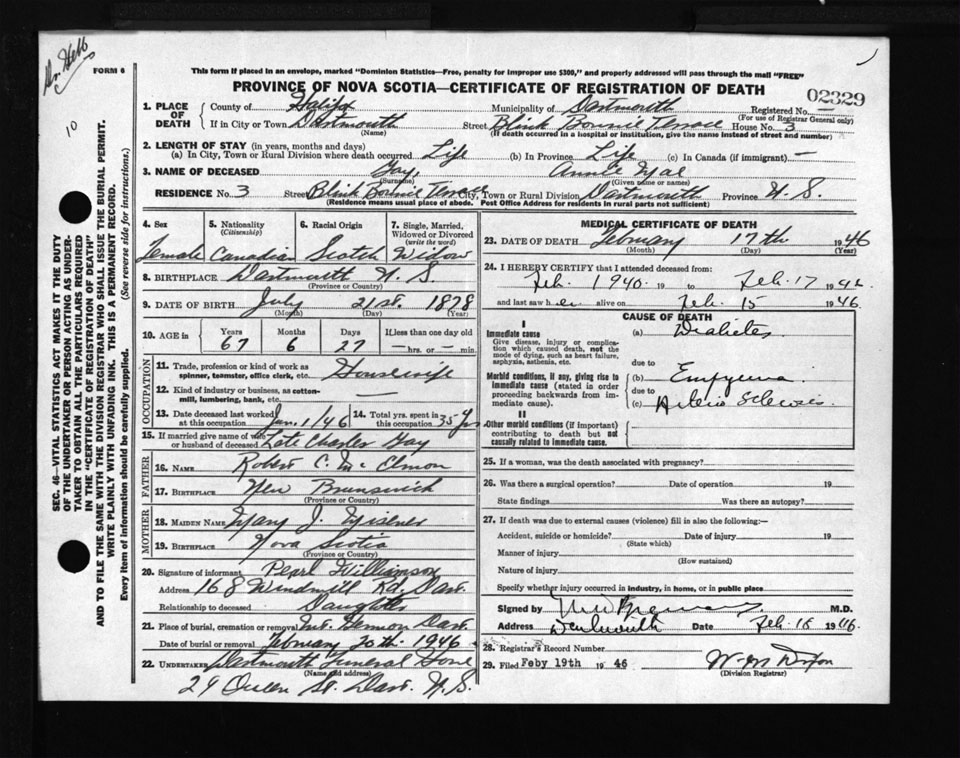 Dr. Hebb
FORM 6
10
SEC. 46—VITAL STATISTICS ACT MAKES IT THE DUTY
OF THE UNDERTAKER OR PERSON ACTING AS UNDER-
TAKER TO OBTAIN ALL THE PARTICULARS REQUIRED
IN THE "CERTIFICATE OF REGISTRATION OF DEATH"
AND TO FILE THE SAME WITH THE DIVISION REGISTRAR WHO SHALL ISSUE THE BURIAL PERMIT.
WRITE PLAINLY WITH UNFADING INK. THIS IS A PERMANENT RECORD.
Every item of information should be carefully supplied. (See reverse side for instructions.)
This form if placed in an envelope, marked "Dominion Statistics—Free, penalty for improper use $300," and properly addressed will pass through the mail "FREE"
PROVINCE OF NOVA SCOTIA—CERTIFICATE OF REGISTRATION OF DEATH
02329
1. PLACE OF DEATH County of Halifax Municipality of Dartmouth Registered No. —
(For use of Registrar General only)
If in City or Town Dartmouth Street Blink Bonnie Terrace House No. 3
(Name) (If death occurred in a hospital or institution, give the name instead of street and number)
2. LENGTH OF STAY (in years, months and days)
(a) In City, Town or Rural Division where death occurred Life (b) In Province Life (c) In Canada (if immigrant) —
3. NAME OF DECEASED Gay, Annie Mae
(Surname) (Given name or names)
RESIDENCE No. 3 Street Blink Bonnie Terrace City, Town or Rural Division Dartmouth Province N. S.
(Residence means usual place of abode. Post Office Address for residents in rural parts not sufficient)
4. Sex Female
5. Nationality (Citizenship) Canadian
6. Racial Origin Scotch
7. Single, Married, Widowed or Divorced (write the word) Widow
8. BIRTHPLACE Dartmouth N. S.
(Province or Country)
9. DATE OF BIRTH July 21st. 1878
(Month) (Day) (Year)
10. AGE in Years 67 Months 6 Days 27 If less than one day old — hrs. or — min.
OCCUPATION
11. Trade, profession or kind of work as spinner, teamster, office clerk, etc. Housewife
12. Kind of industry or business, as cotton-mill, lumbering, bank, etc. —
13. Date deceased last worked at this occupation Jan. 1/46 14. Total yrs. spent in this occupation 35 yrs
15. If married give name of wife or husband of deceased Late Charles Gay
FATHER
16. NAME Robert C. Mc Elmon
17. BIRTHPLACE New Brunswick
(Province or Country)
MOTHER
18. MAIDEN NAME Mary J. Misener
19. BIRTHPLACE Nova Scotia
(Province or Country)
20. Signature of informant Pearl Williamson
Address 168 Windmill Rd. Dart.
Relationship to deceased Daughter
21. Place of burial, cremation or removal Mt. Hermon Dart.
Date of burial or removal February 20th. 1946
22. UNDERTAKER Dartmouth Funeral Home
(Name and address)
29 Queen St. Dart. N. S.
MEDICAL CERTIFICATE OF DEATH
23. DATE OF DEATH February 17th 1946
(Month) (Day) (Year)
24. I HEREBY CERTIFY that I attended deceased from:
Feb. 1940 19 to Feb. 17 1946
and last saw her alive on Feb. 15 1946
CAUSE OF DEATH
I
Immediate cause
Give disease, injury or complication which caused death, not the mode of dying, such as heart failure, asphyxia, asthenia, etc.
(a) Diabetes
due to
Morbid conditions, if any, giving rise to immediate cause (stated in order proceeding backwards from immediate cause).
(b) Empyema
due to
(c) Arterio Sclerosis
II
Other morbid conditions (if important) contributing to death but not causally related to immediate cause.
25. If a woman, was the death associated with pregnancy?
26. Was there a surgical operation? Date of operation 19
State findings Was there an autopsy?
27. If death was due to external causes (violence) fill in also the following:—
Accident, suicide or homicide? Date of injury 19
(State which)
Manner of injury
(How sustained)
Nature of injury
Specify whether injury occurred in industry, in home, or in public place
Signed by M.D.
Address Dartmouth Date Feb. 18 1946
28. Registrar's Record Number
29. Filed Feby 19th 1946 W. M. Dixon
(Division Registrar)